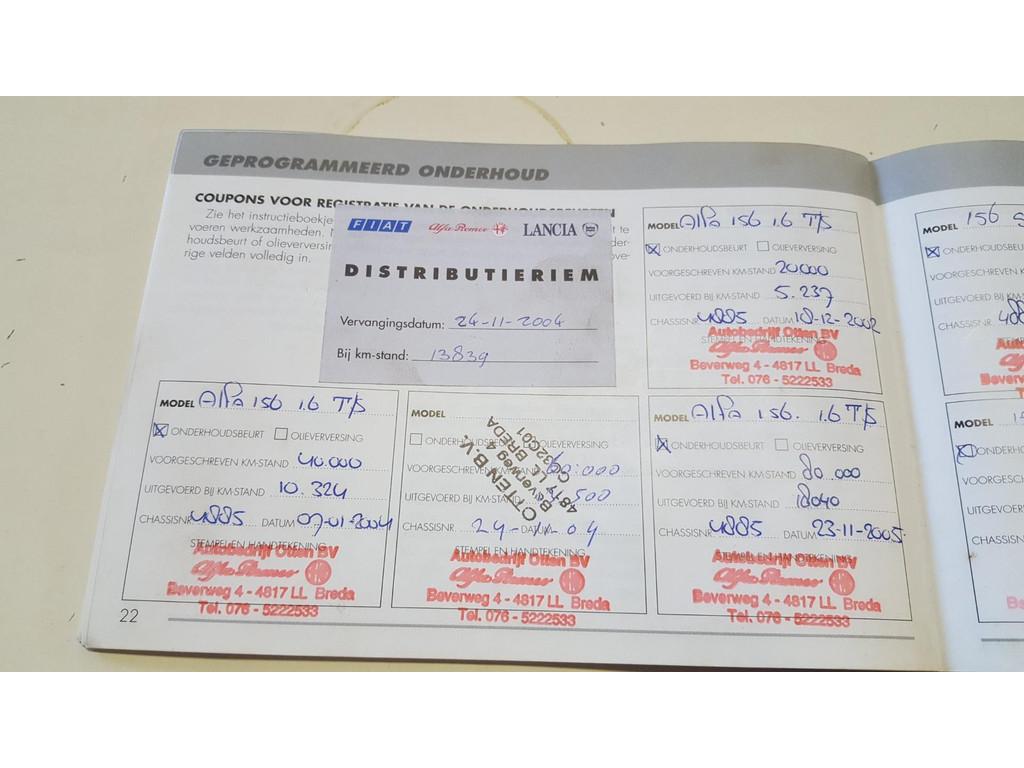 GEPROGRAMMEERD ONDERHOUD
COUPONS VOOR REGISTRATIE VAN DE ONDERHOUDSBEURTEN
Zie het instructieboekje
voeren werkzaamheden.
houdsbeurt of olieverversin
rige velden volledig in.
te
der-
ove-
FIAT Alfa Romeo LANCIA
DISTRIBUTIERIEM
Vervangingsdatum: 24-11-2004
Bij km-stand: 13839
MODEL Alfa 156 1.6 T/S
ONDERHOUDSBEURT OLIEVERVERSING
VOORGESCHREVEN KM-STAND 20000
UITGEVOERD BIJ KM-STAND 5.237
CHASSISNR. 4885 DATUM 18-12-2002
STEMPEL EN HANDTEKENING
Autobedrijf Otten BV
Alfa Romeo
Beverweg 4 - 4817 LL Breda
Tel. 076 - 5222533
MODEL 156
ONDERHOUDSBEURT
VOORGESCHREVEN KM-STAND
UITGEVOERD BIJ KM-STAND
CHASSISNR.
MODEL Alfa 156 1.6 T/S
ONDERHOUDSBEURT OLIEVERVERSING
VOORGESCHREVEN KM-STAND 40.000
UITGEVOERD BIJ KM-STAND 10.324
CHASSISNR. 4885 DATUM 07-01-2004
STEMPEL EN HANDTEKENING
Autobedrijf Otten BV
Alfa Romeo
Beverweg 4 - 4817 LL Breda
Tel. 076 - 5222533
MODEL
ONDERHOUDSBEURT OLIEVERVERSING
VOORGESCHREVEN KM-STAND 60.000
UITGEVOERD BIJ KM-STAND
CHASSISNR. 24-11-04
OTTEN B.V.
Beverweg 4
4817 LL BREDA
STEMPEL EN HANDTEKENING
Autobedrijf Otten BV
Alfa Romeo
Beverweg 4 - 4817 LL Breda
Tel. 076 - 5222533
MODEL Alfa 156. 1.6 T/S
ONDERHOUDSBEURT OLIEVERVERSING
VOORGESCHREVEN KM-STAND 80.000
UITGEVOERD BIJ KM-STAND 18040
CHASSISNR. 4885 DATUM 23-11-2005
STEMPEL EN HANDTEKENING
Autobedrijf Otten BV
Alfa Romeo
Beverweg 4 - 4817 LL Breda
Tel. 076 - 5222533
MODEL
ONDERHOUDSBEURT
VOORGESCHREVEN
UITGEVOERD BIJ
CHASSISNR.
22